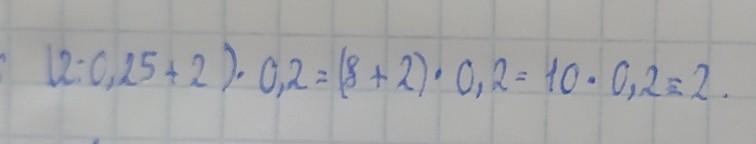 (2:0,25+2)·0,2=(8+2)·0,2=10·0,2=2.